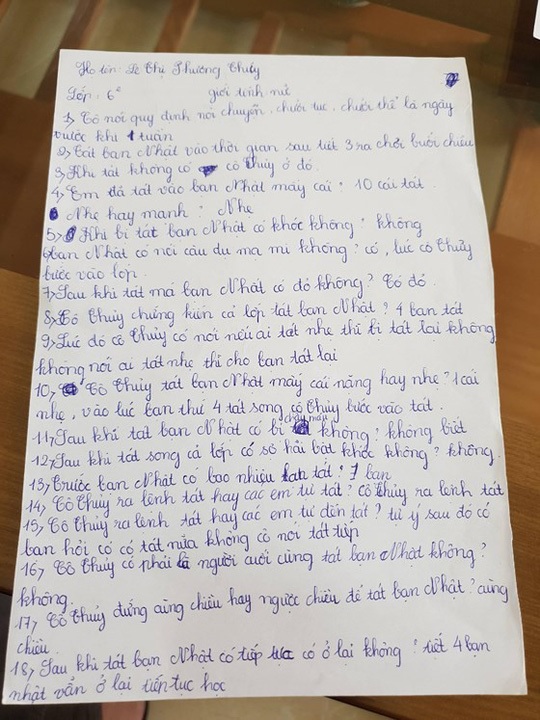 Họ tên: Lê Thị Phương Thuý
Lớp: 6² giới tính nữ
1, Cô nói quy định nói chuyện, chưởi tục, chưởi thề là ngày
trước khi 1 tuần
2, Tát bạn Nhật vào thời gian sau tiết 3 ra chơi buổi chiều
3, Khi tát không có cô Thủy ở đó.
4, Em đã tát vào bạn Nhật mấy cái? 10 cái tát.
Nhẹ hay mạnh? Nhẹ
5, Khi bị tát bạn Nhật có khóc không? không
6, bạn Nhật có nói câu du ma mi không? có, lúc cô Thủy
bước vào lớp.
7, Sau khi tát má bạn Nhật có đỏ không? Có đỏ.
8, Cô Thủy chứng kiến cả lớp tát bạn Nhật? 4 bạn tát
9, Lúc đó cô Thủy có nói nếu ai tát nhẹ thì bị tát lại không
không nói ai tát nhẹ thì cho bạn tát lại
10, Cô Thủy tát bạn Nhật mấy cái nặng hay nhẹ? 1 cái
nhẹ, vào lúc bạn thứ 4 tát song cô Thủy bước vào tát.
11, Sau khi tát bạn Nhật có bị chảy máu không? không biết
12, Sau khi tát song cả lớp có sợ hãi bật khóc không? không.
13, Trước bạn Nhật có bao nhiêu bạn tát? 7 bạn
14, Cô Thủy ra lệnh tát hay các em tự tát? Cô Thủy ra lệnh tát
15, Cô Thủy ra lệnh tát hay các em tự đến tát? tự ý sau đó có
bạn hỏi cô có tát nữa không cô nói tát tiếp
16, Cô Thủy có phải là người cuối cùng tát bạn Nhật không?
không.
17, Cô Thủy đứng cùng chiều hay ngược chiều để tát bạn Nhật? cùng
chiều.
18, Sau khi tát bạn Nhật có tiếp tục có ở lại không? tiết 4 bạn
nhật vẫn ở lại tiếp tục học